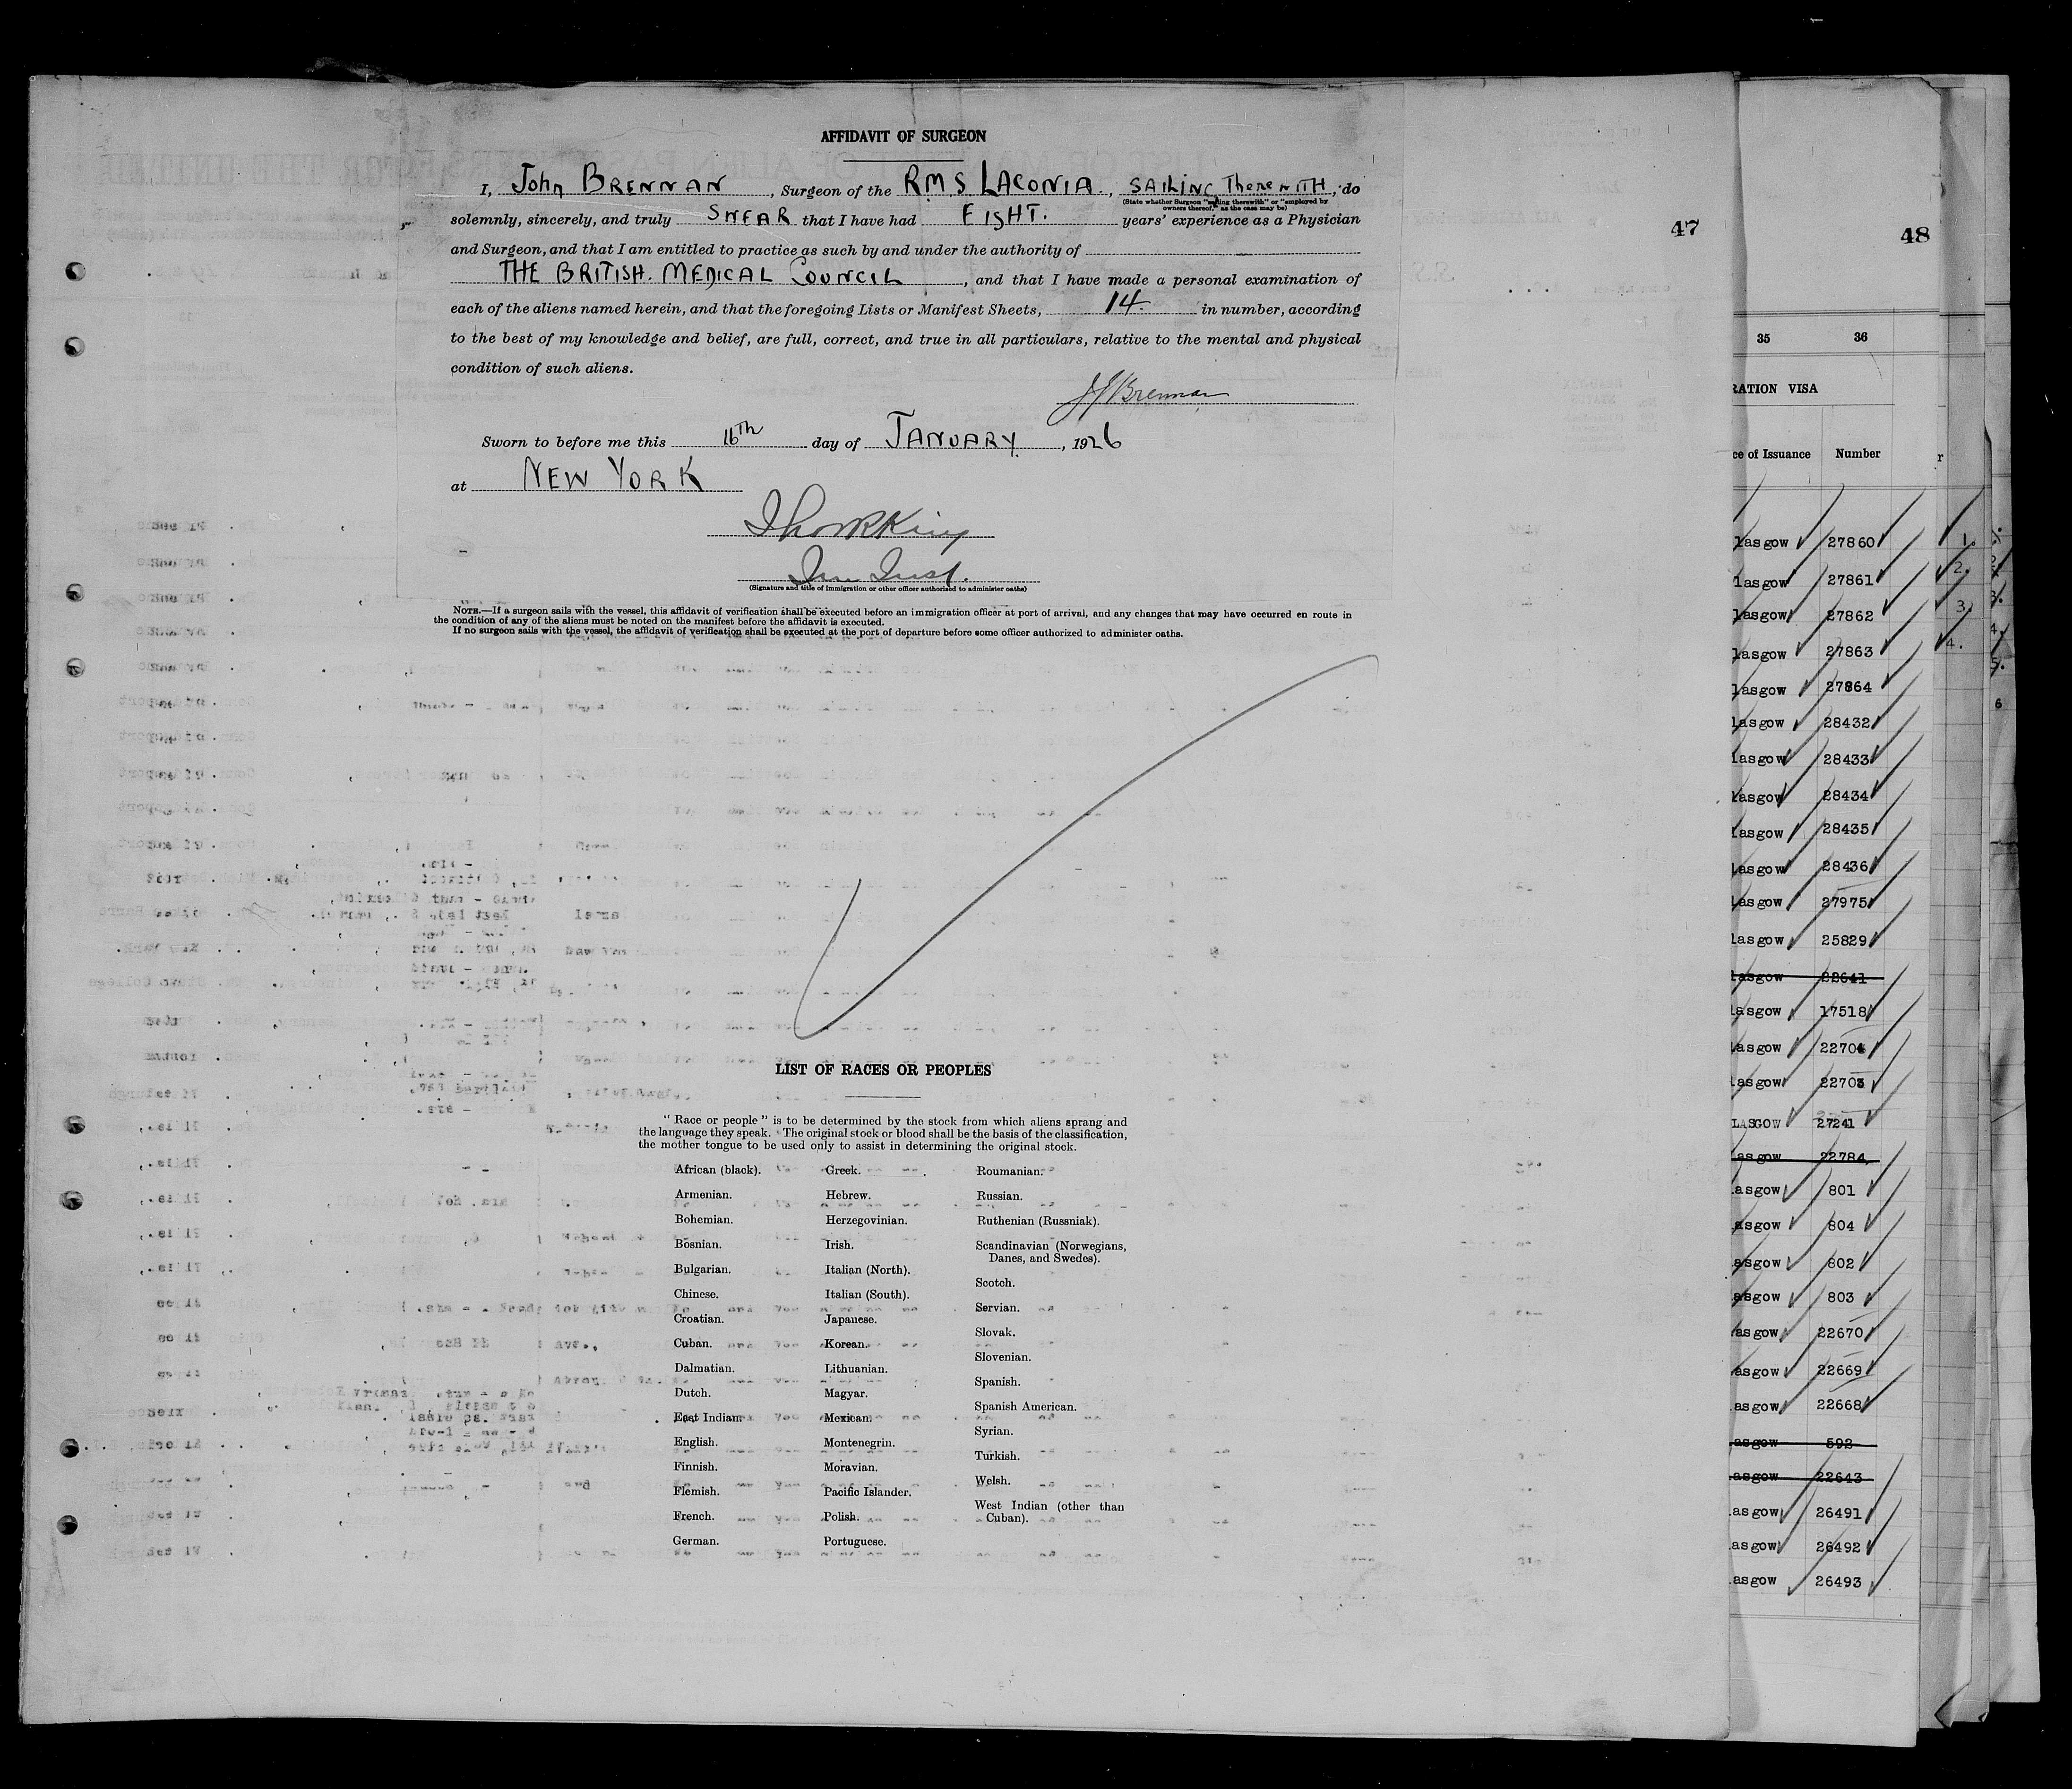 AFFIDAVIT OF SURGEON
I, John BRENNAN, Surgeon of the R.M.S LACONIA., SAILING ThereWITH, do
(State whether Surgeon "sailing therewith" or "employed by
owners thereof," as the case may be)
solemnly, sincerely, and truly SWEAR that I have had EIGHT. years' experience as a Physician
and Surgeon, and that I am entitled to practice as such by and under the authority of
THE BRITISH. MEDICAL COUNCIL, and that I have made a personal examination of
each of the aliens named herein, and that the foregoing Lists or Manifest Sheets, 14. in number, according
to the best of my knowledge and belief, are full, correct, and true in all particulars, relative to the mental and physical
condition of such aliens.
JJ Brennan
Sworn to before me this 16th day of JANUARY, 1926
at NEW YORK
Imm Insp.
(Signature and title of immigration or other officer authorized to administer oaths)
NOTE.—If a surgeon sails with the vessel, this affidavit of verification shall be executed before an immigration officer at port of arrival, and any changes that may have occurred en route in
the condition of any of the aliens must be noted on the manifest before the affidavit is executed.
If no surgeon sails with the vessel, the affidavit of verification shall be executed at the port of departure before some officer authorized to administer oaths.
LIST OF RACES OR PEOPLES
"Race or people" is to be determined by the stock from which aliens sprang and
the language they speak. The original stock or blood shall be the basis of the classification,
the mother tongue to be used only to assist in determining the original stock.
African (black).
Armenian.
Bohemian.
Bosnian.
Bulgarian.
Chinese.
Croatian.
Cuban.
Dalmatian.
Dutch.
East Indian.
English.
Finnish.
Flemish.
French.
German.
Greek.
Hebrew.
Herzegovinian.
Irish.
Italian (North).
Italian (South).
Japanese.
Korean.
Lithuanian.
Magyar.
Mexican.
Montenegrin.
Moravian.
Pacific Islander.
Polish.
Portuguese.
Roumanian.
Russian.
Ruthenian (Russniak).
Scandinavian (Norwegians,
Danes, and Swedes).
Scotch.
Servian.
Slovak.
Slovenian.
Spanish.
Spanish American.
Syrian.
Turkish.
Welsh.
West Indian (other than
Cuban).
47
48
35 36
RATION VISA
ce of Issuance Number
lasgow 27860
lasgow 27861
lasgow 27862
lasgow 27863
lasgow 27864
lasgow 28432
lasgow 28433
lasgow 28434
lasgow 28435
lasgow 28436
lasgow 27975
lasgow 25829
lasgow 22641
lasgow 17518
lasgow 22704
lasgow 22703
LASGOW 27241
asgow 22784
asgow 801
asgow 804
asgow 802
asgow 803
asgow 22670
asgow 22669
asgow 22668
asgow 592
asgow 22643
asgow 26491
asgow 26492
asgow 26493
1.
2.
3.
4.
3.
4.
5.
6